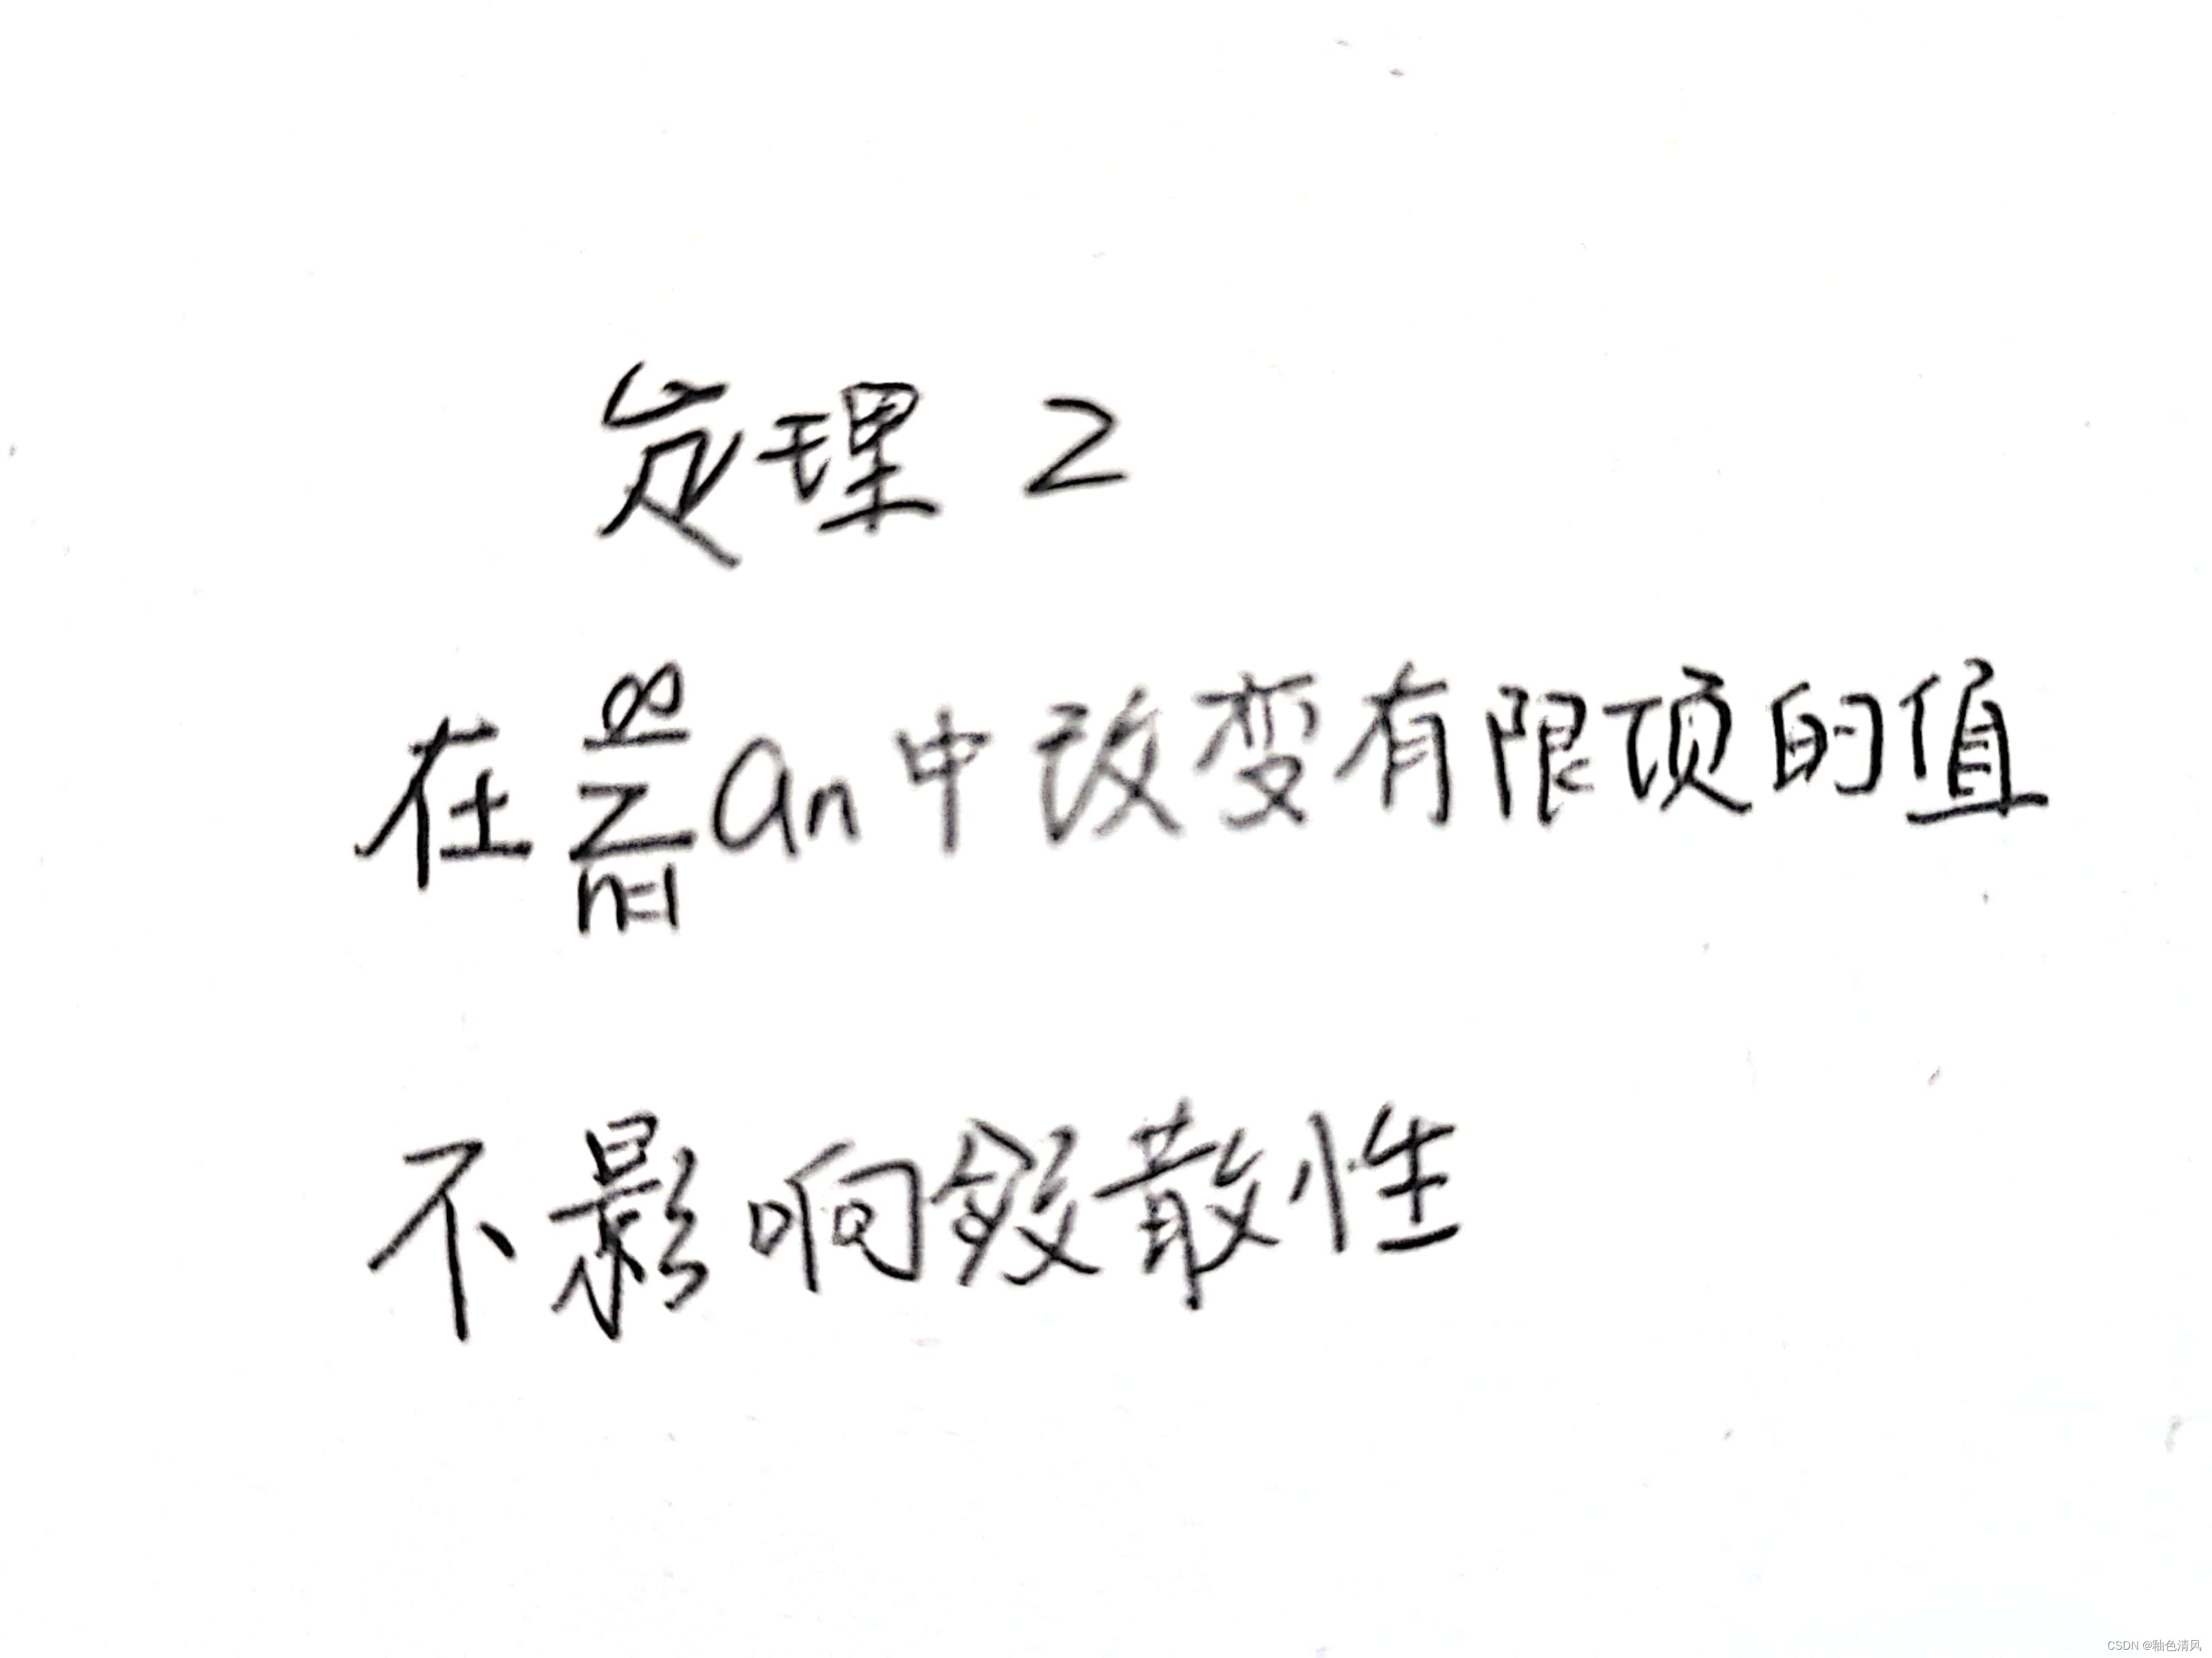 定理 2
在 $\sum_{n=1}^{\infty} a_n$ 中改变有限项的值
不影响敛散性
CSDN @釉色清风